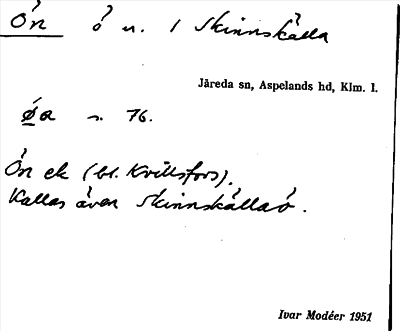 Ön ö n. i Skinnskälla
Järeda sn, Aspelands hd, Klm. l.
öa s. 76.
Ön ek (bl. Kvillsfors).
Kallas även Skinnskällaö.
Ivar Modéer 1951